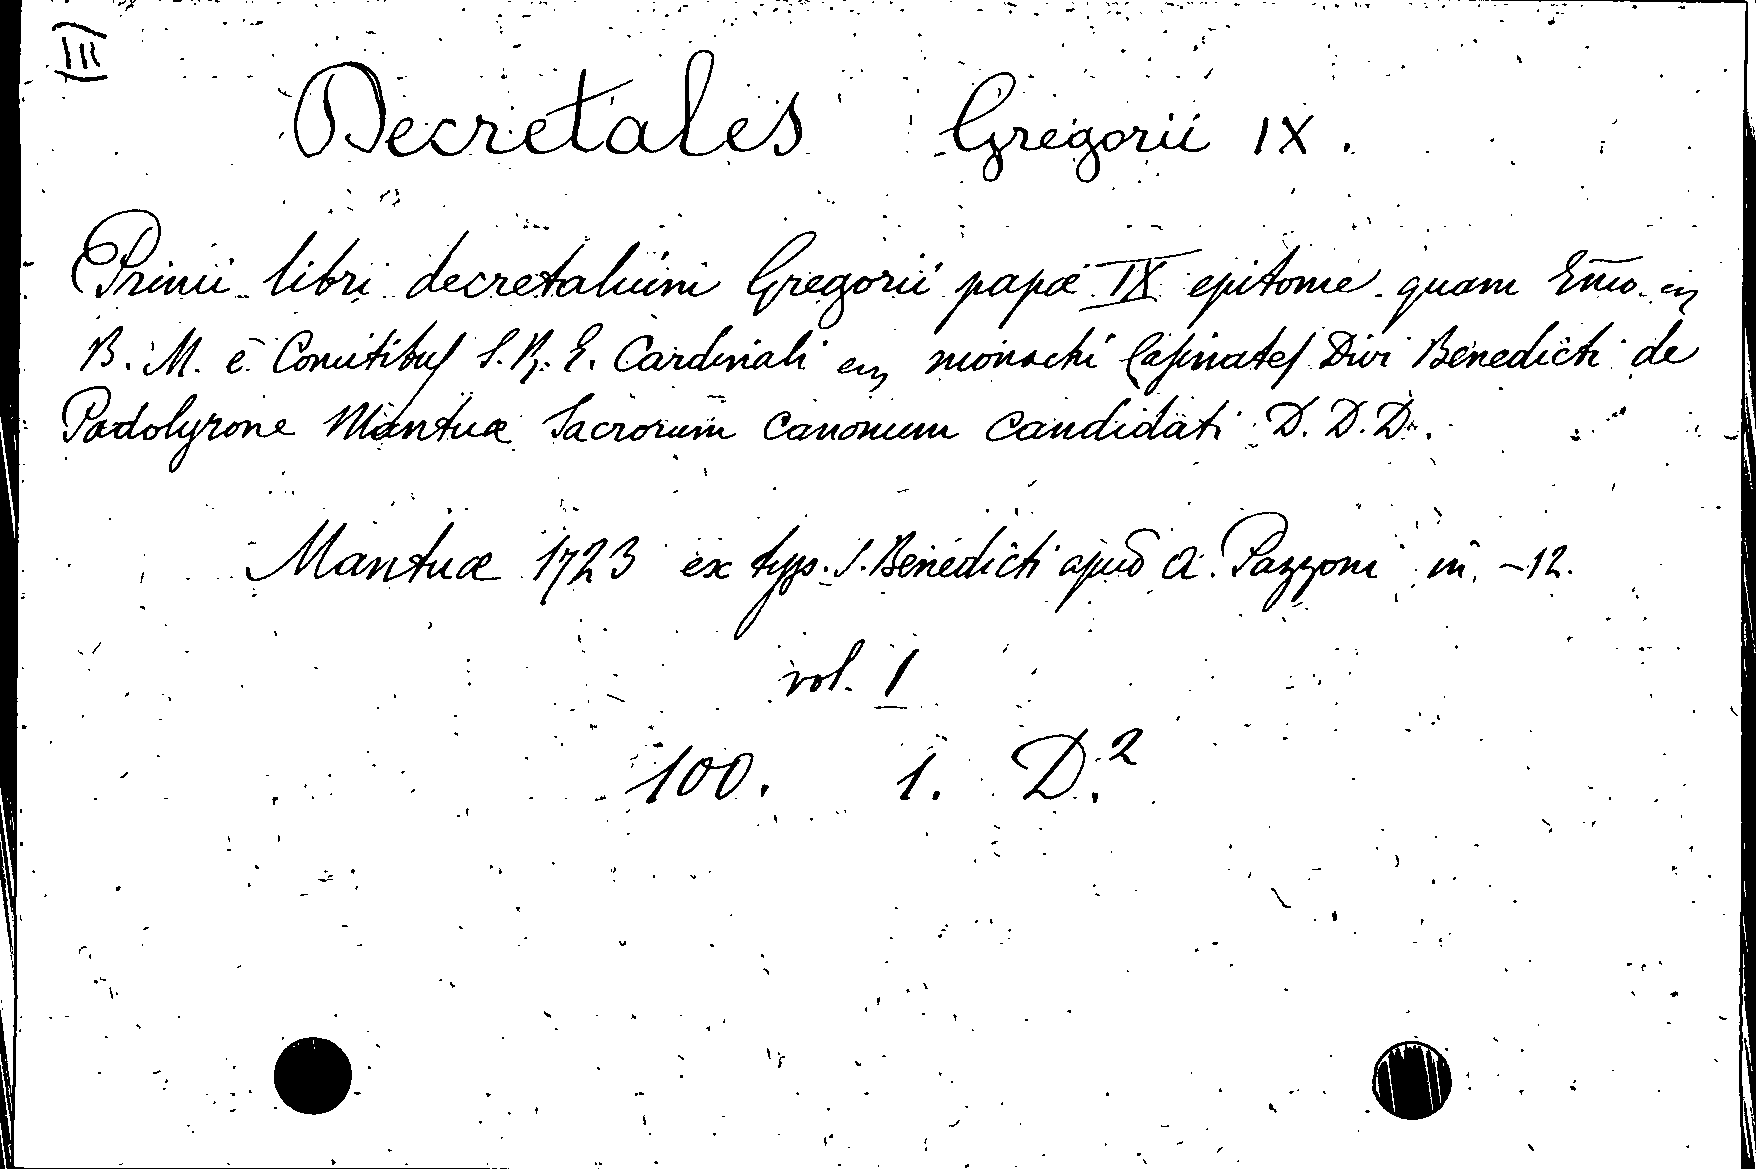 (III)
Decretales Gregorii IX.
Primi libri decretalium Gregorii papæ IX epitome quam Emo.
B. M. e Comitibus S. R. E. Cardinali monachi Casinates Divi Benedicti de
Padolyrone Mantuæ Sacrorum Canonum Candidati D. D. D.
Mantuæ 1723 ex typ. S. Benedicti apud A. Pazzoni in -12.
vol. 1
100. 1. D.2